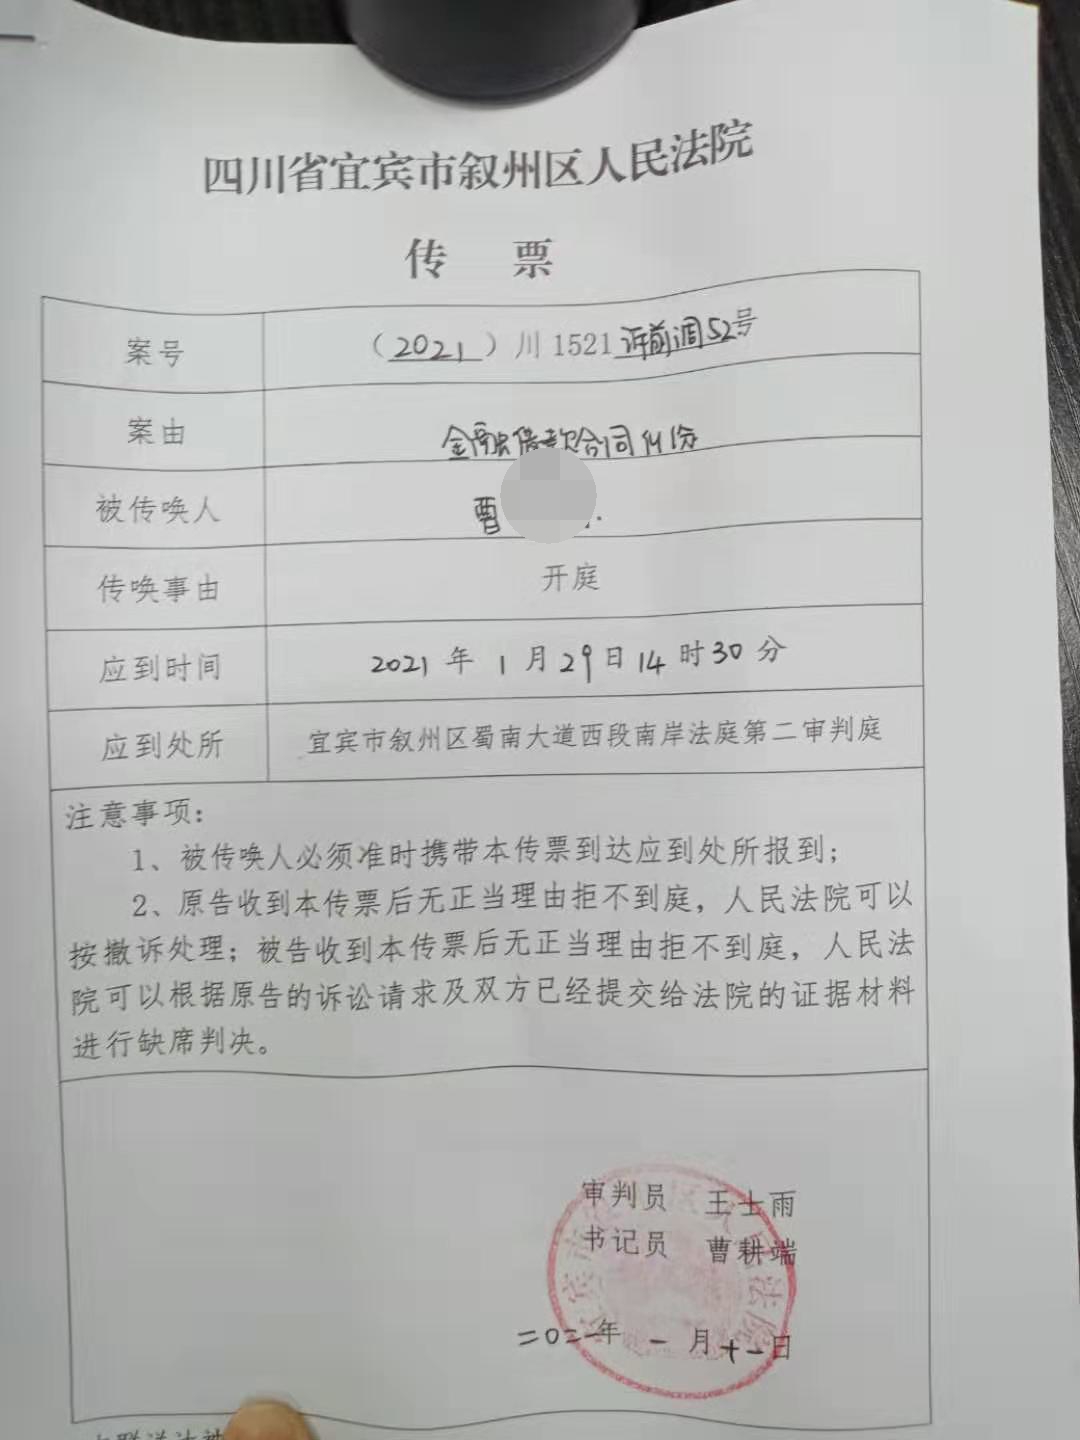 四川省宜宾市叙州区人民法院
传 票
案号 （2021）川1521诉前调52号
案由 金融借款合同纠纷
被传唤人 曹
传唤事由 开庭
应到时间 2021年1月29日14时30分
应到处所 宜宾市叙州区蜀南大道西段南岸法庭第二审判庭
注意事项：
1、被传唤人必须准时携带本传票到达应到处所报到；
2、原告收到本传票后无正当理由拒不到庭，人民法院可以
按撤诉处理；被告收到本传票后无正当理由拒不到庭，人民法
院可以根据原告的诉讼请求及双方已经提交给法院的证据材料
进行缺席判决。
审判员 王士雨
书记员 曹耕端
二〇二一年一月十一日